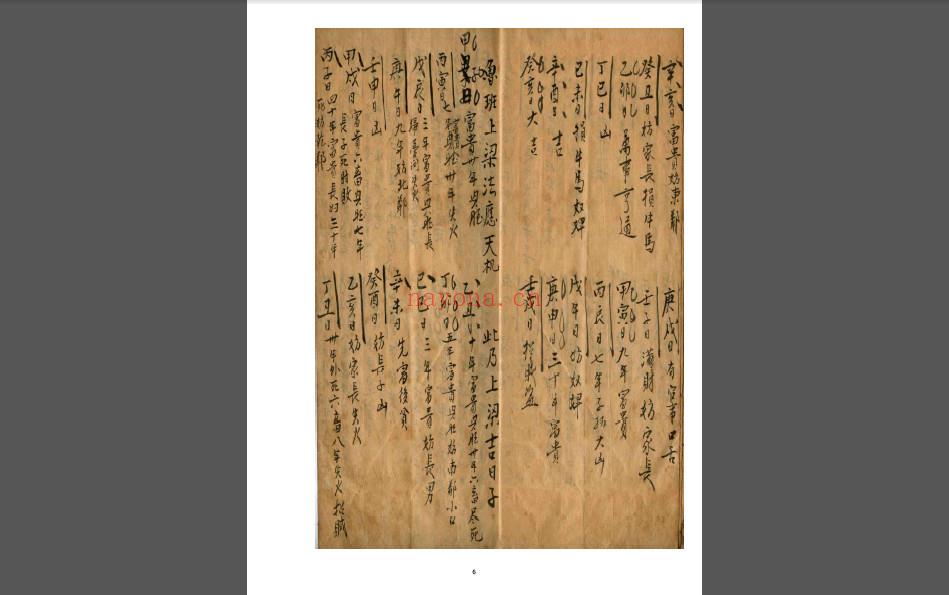 辛亥日富貴妨東鄰
庚戌日有官事口舌
癸丑日妨家長損牛馬
壬子日満財妨家長
乙卯日萬事亨通
甲寅日九年富貴
丁巳日凶
丙辰日七年子孫大凶
己未日損牛馬奴婢
戊午日妨奴婢
辛酉日吉
庚申日三十年富貴
癸亥日大吉
壬戌日
魯班上梁法應天机
此乃上梁吉日子
甲子日富貴廿年興旺
乙丑日十年富貴興旺廿年六畜尽死
丙寅日七年
卅年失火
丁卯日五年富貴興旺妨南鄰小口
戊辰日三年富貴
己巳日三年富貴妨長男
庚午日九年妨北鄰
辛未日先富後貧
壬申日凶
癸酉日妨長子凶
甲戌日富貴六畜興旺七年
長子死財敗
乙亥日妨家長失火
丙子日四十年富貴長妇三十年
死妨北鄰
丁丑日卅年外死六畜八年失火招賊
nayona.cn
6